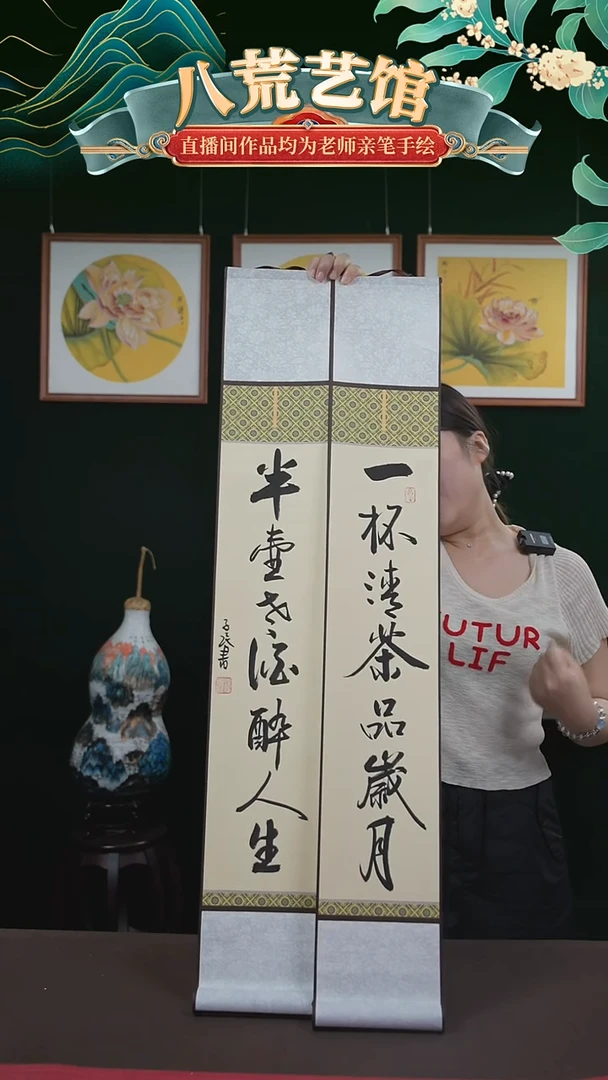 八荒艺馆
直播间作品均为老师亲笔手绘
一杯清茶品歲月
半壺老酒醉人生
FUTUR
LIF